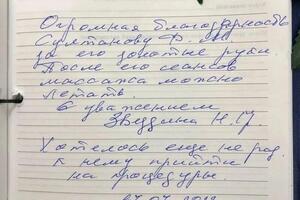 Огромная благодарность
Султанову Ф.
за его золотые руки.
После его сеансов
массажа можно
летать.
С уважением
Звездина Н.
Хотелось еще не раз
к нему прийти
на процедуры.